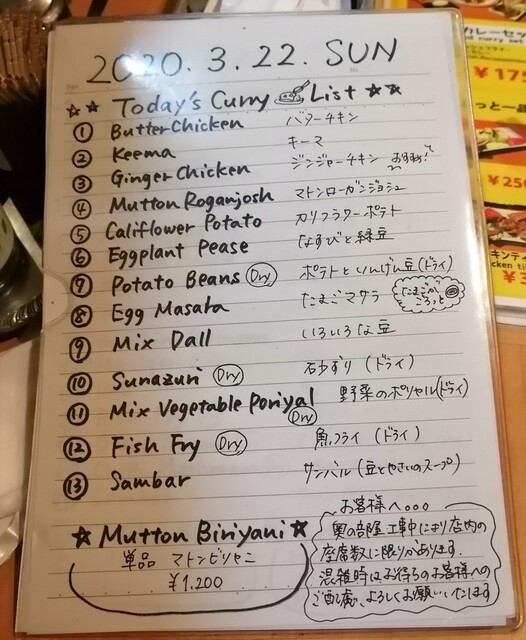 2020.3.22.SUN
☆☆ Today's Curry List ★☆
① Butter Chicken バターチキン
② Keema キーマ
③ Ginger Chicken ジンジャーチキン おすすめ!
④ Mutton Roganjosh マトンローガンジョシュ
⑤ Califlower Potato カリフラワーポテト
⑥ Eggplant Pease なすびと緑豆
⑦ Potato Beans Dry ポテトといんげん豆(ドライ)
⑧ Egg Masala たまごマサラ たまごが ごろっと
⑨ Mix Dall いろいろな豆
⑩ Sunazuri Dry 石ずり (ドライ)
⑪ Mix Vegetable Poriyal Dry 野菜のポリヤル(ドライ)
⑫ Fish Fry Dry 魚フライ (ドライ)
⑬ Sambar サンバル (豆とやさいのスープ)
★ Mutton Biriyani ★
単品 マトンビリヤニ
¥1,200
お客様へ。。。
奥の部屋工事中により店内の
座席数に限りがあります。
混雑時はお待ちのお客様への
ご配慮、よろしくお願いいたします
カレーセッ
curry set
¥175
っと一品
¥250
キンティ
cken ti